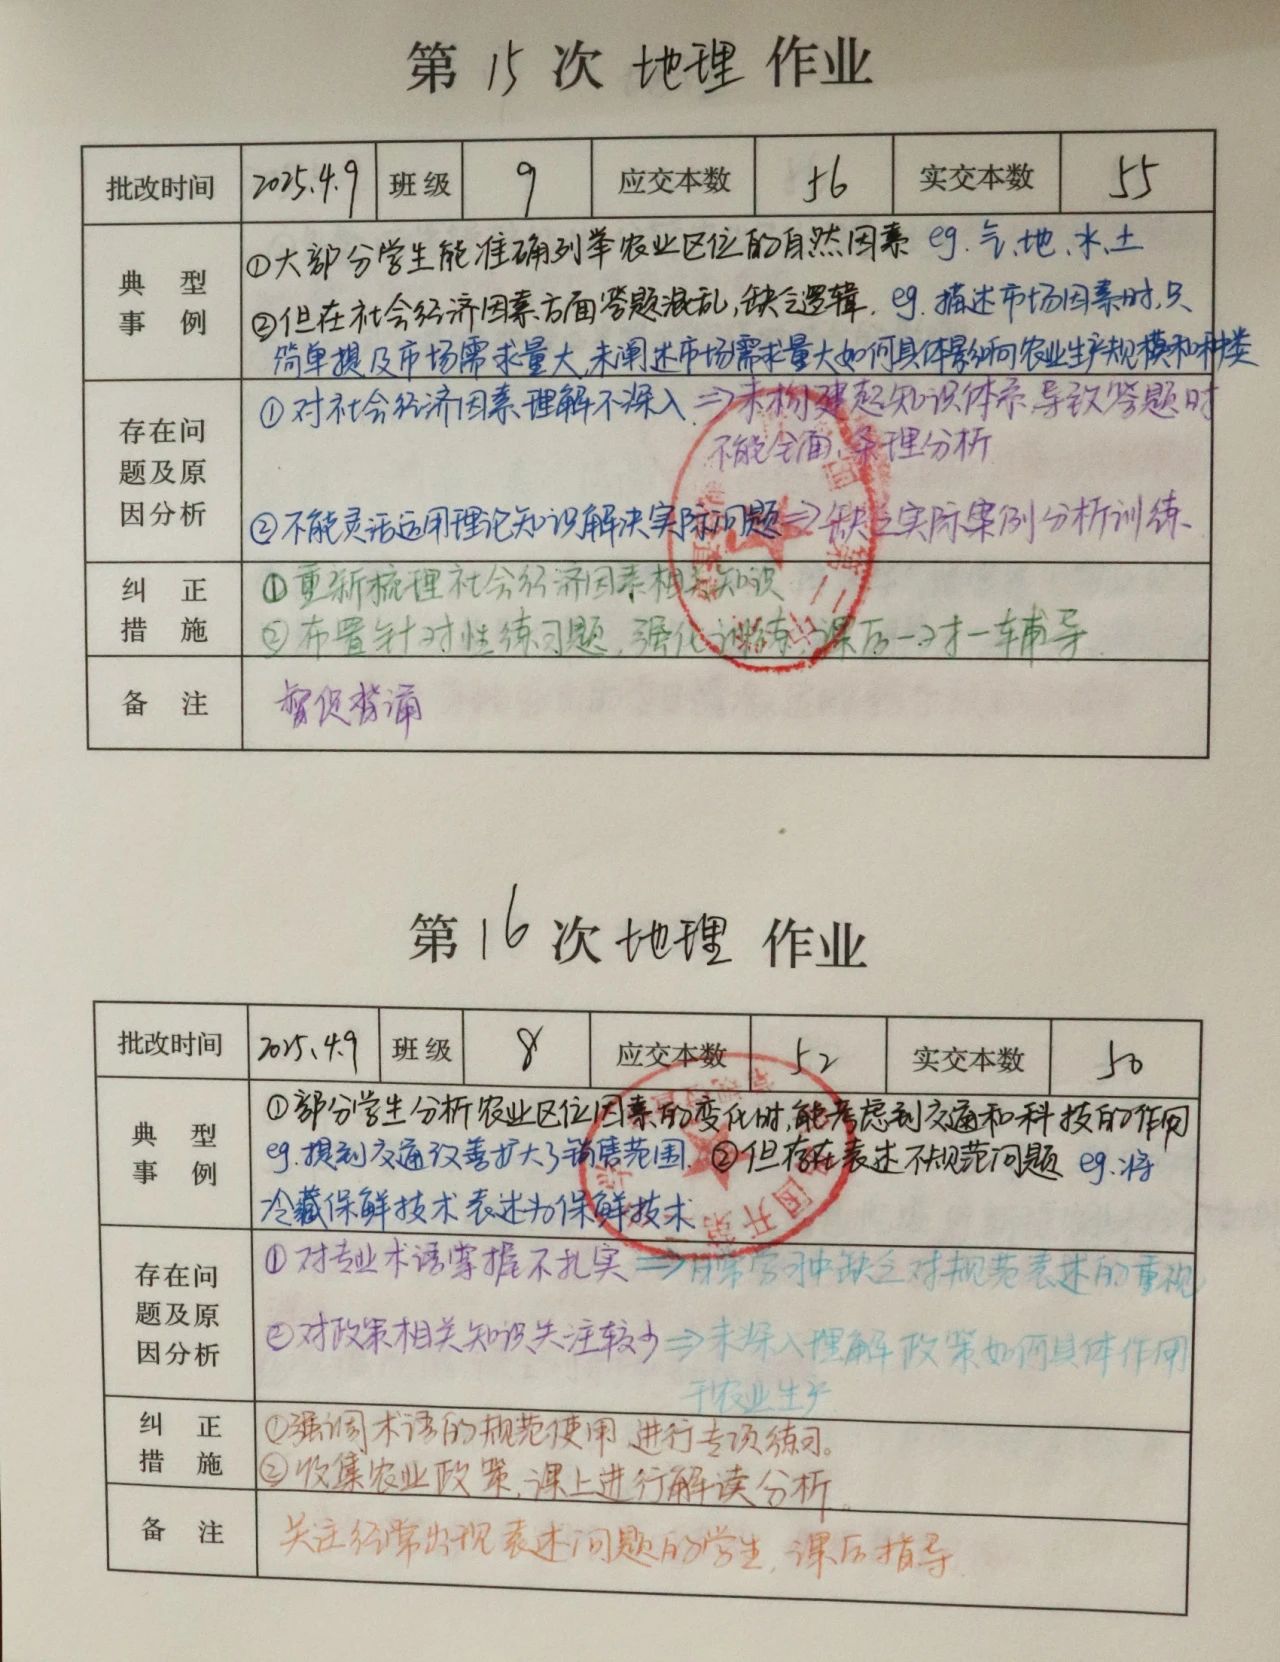 第 15 次 地理 作业
批改时间 2025.4.9 班级 9 应交本数 56 实交本数 55
典型事例
①大部分学生能准确列举农业区位的自然因素 eg.气、地、水、土
②但在社会经济因素方面答题混乱,缺乏逻辑. eg.描述市场因素时,只
简单提及市场需求量大,未阐述市场需求量大如何具体影响农业生产规模和种类
存在问题及原因分析
①对社会经济因素理解不深入 ⇒未构建起知识体系,导致答题时
不能全面、条理分析
②不能灵活运用理论知识解决实际问题⇒缺乏实际案例分析训练
纠正措施
①重新梳理社会经济因素相关知识
②布置针对性练习题,强化训练,课后一对一辅导.
备注 督促背诵
第 16 次 地理 作业
批改时间 2025.4.9 班级 8 应交本数 52 实交本数 50
典型事例
①部分学生分析农业区位因素的变化时,能考虑到交通和科技的作用
eg.提到交通改善扩大了销售范围. ②但存在表述不规范问题 eg.将
冷藏保鲜技术表述为保鲜技术
存在问题及原因分析
①对专业术语掌握不扎实⇒日常学习中缺乏对规范表述的重视
②对政策相关知识关注较少⇒未深入理解政策如何具体作用
于农业生产
纠正措施
①强调术语的规范使用,进行专项练习。
②收集农业政策,课上进行解读分析。
备注 关注经常出现表述问题的学生,课后指导.